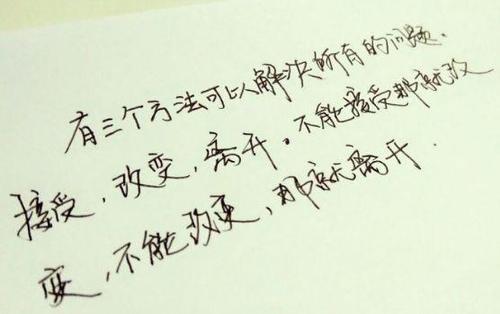 有三个方法可以解决所有的问题.
接受,改变,离开。不能接受那就改
变,不能改变,那就离开.